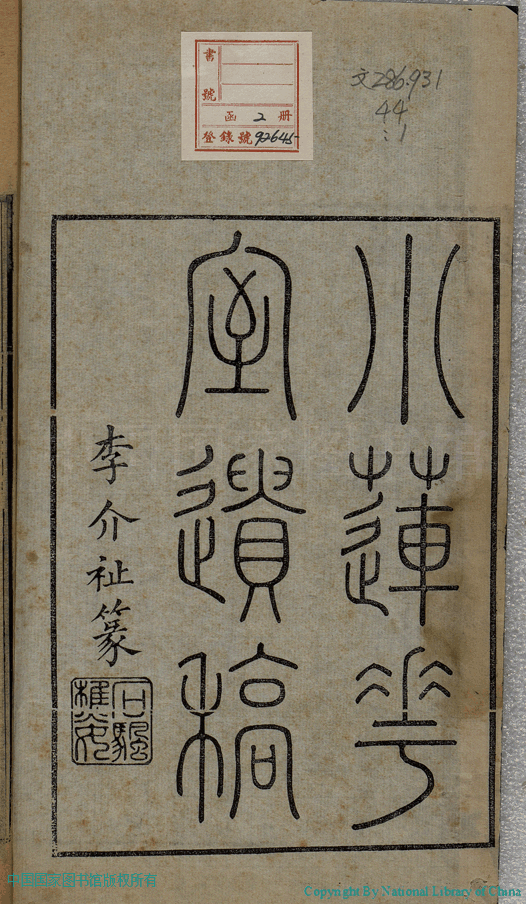 書號
函 2 册
登錄號 92645
文286.931
44
:1
小蓮花
室遺稿
李介祉篆
中国国家图书馆版权所有
Copyright By National Library of China